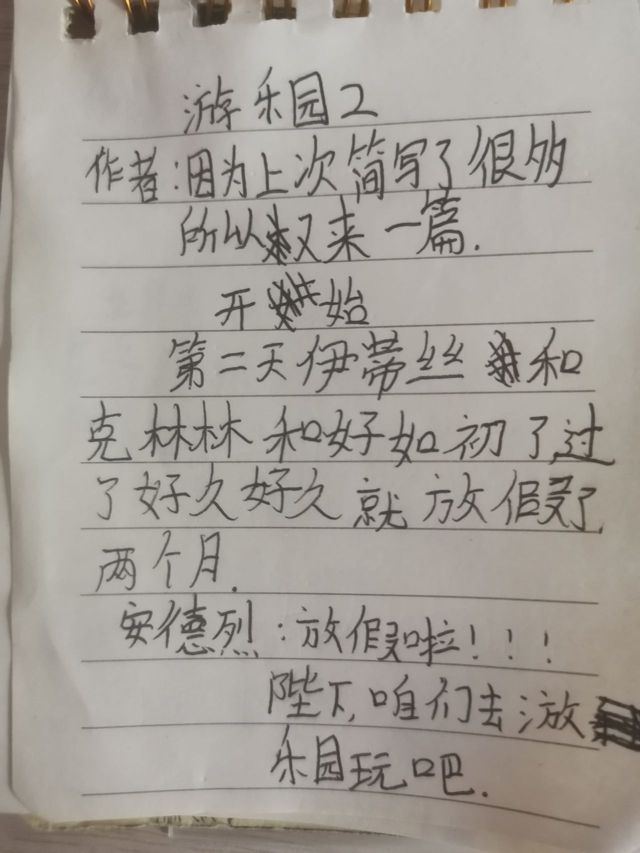 游乐园2
作者:因为上次简写了很多
所以又来一篇.
开始
第二天伊蒂丝和
克林林和好如初了,过
了好久好久就放假了
两个月.
安德烈:放假啦!!!
陛下,咱们去游
乐园玩吧.